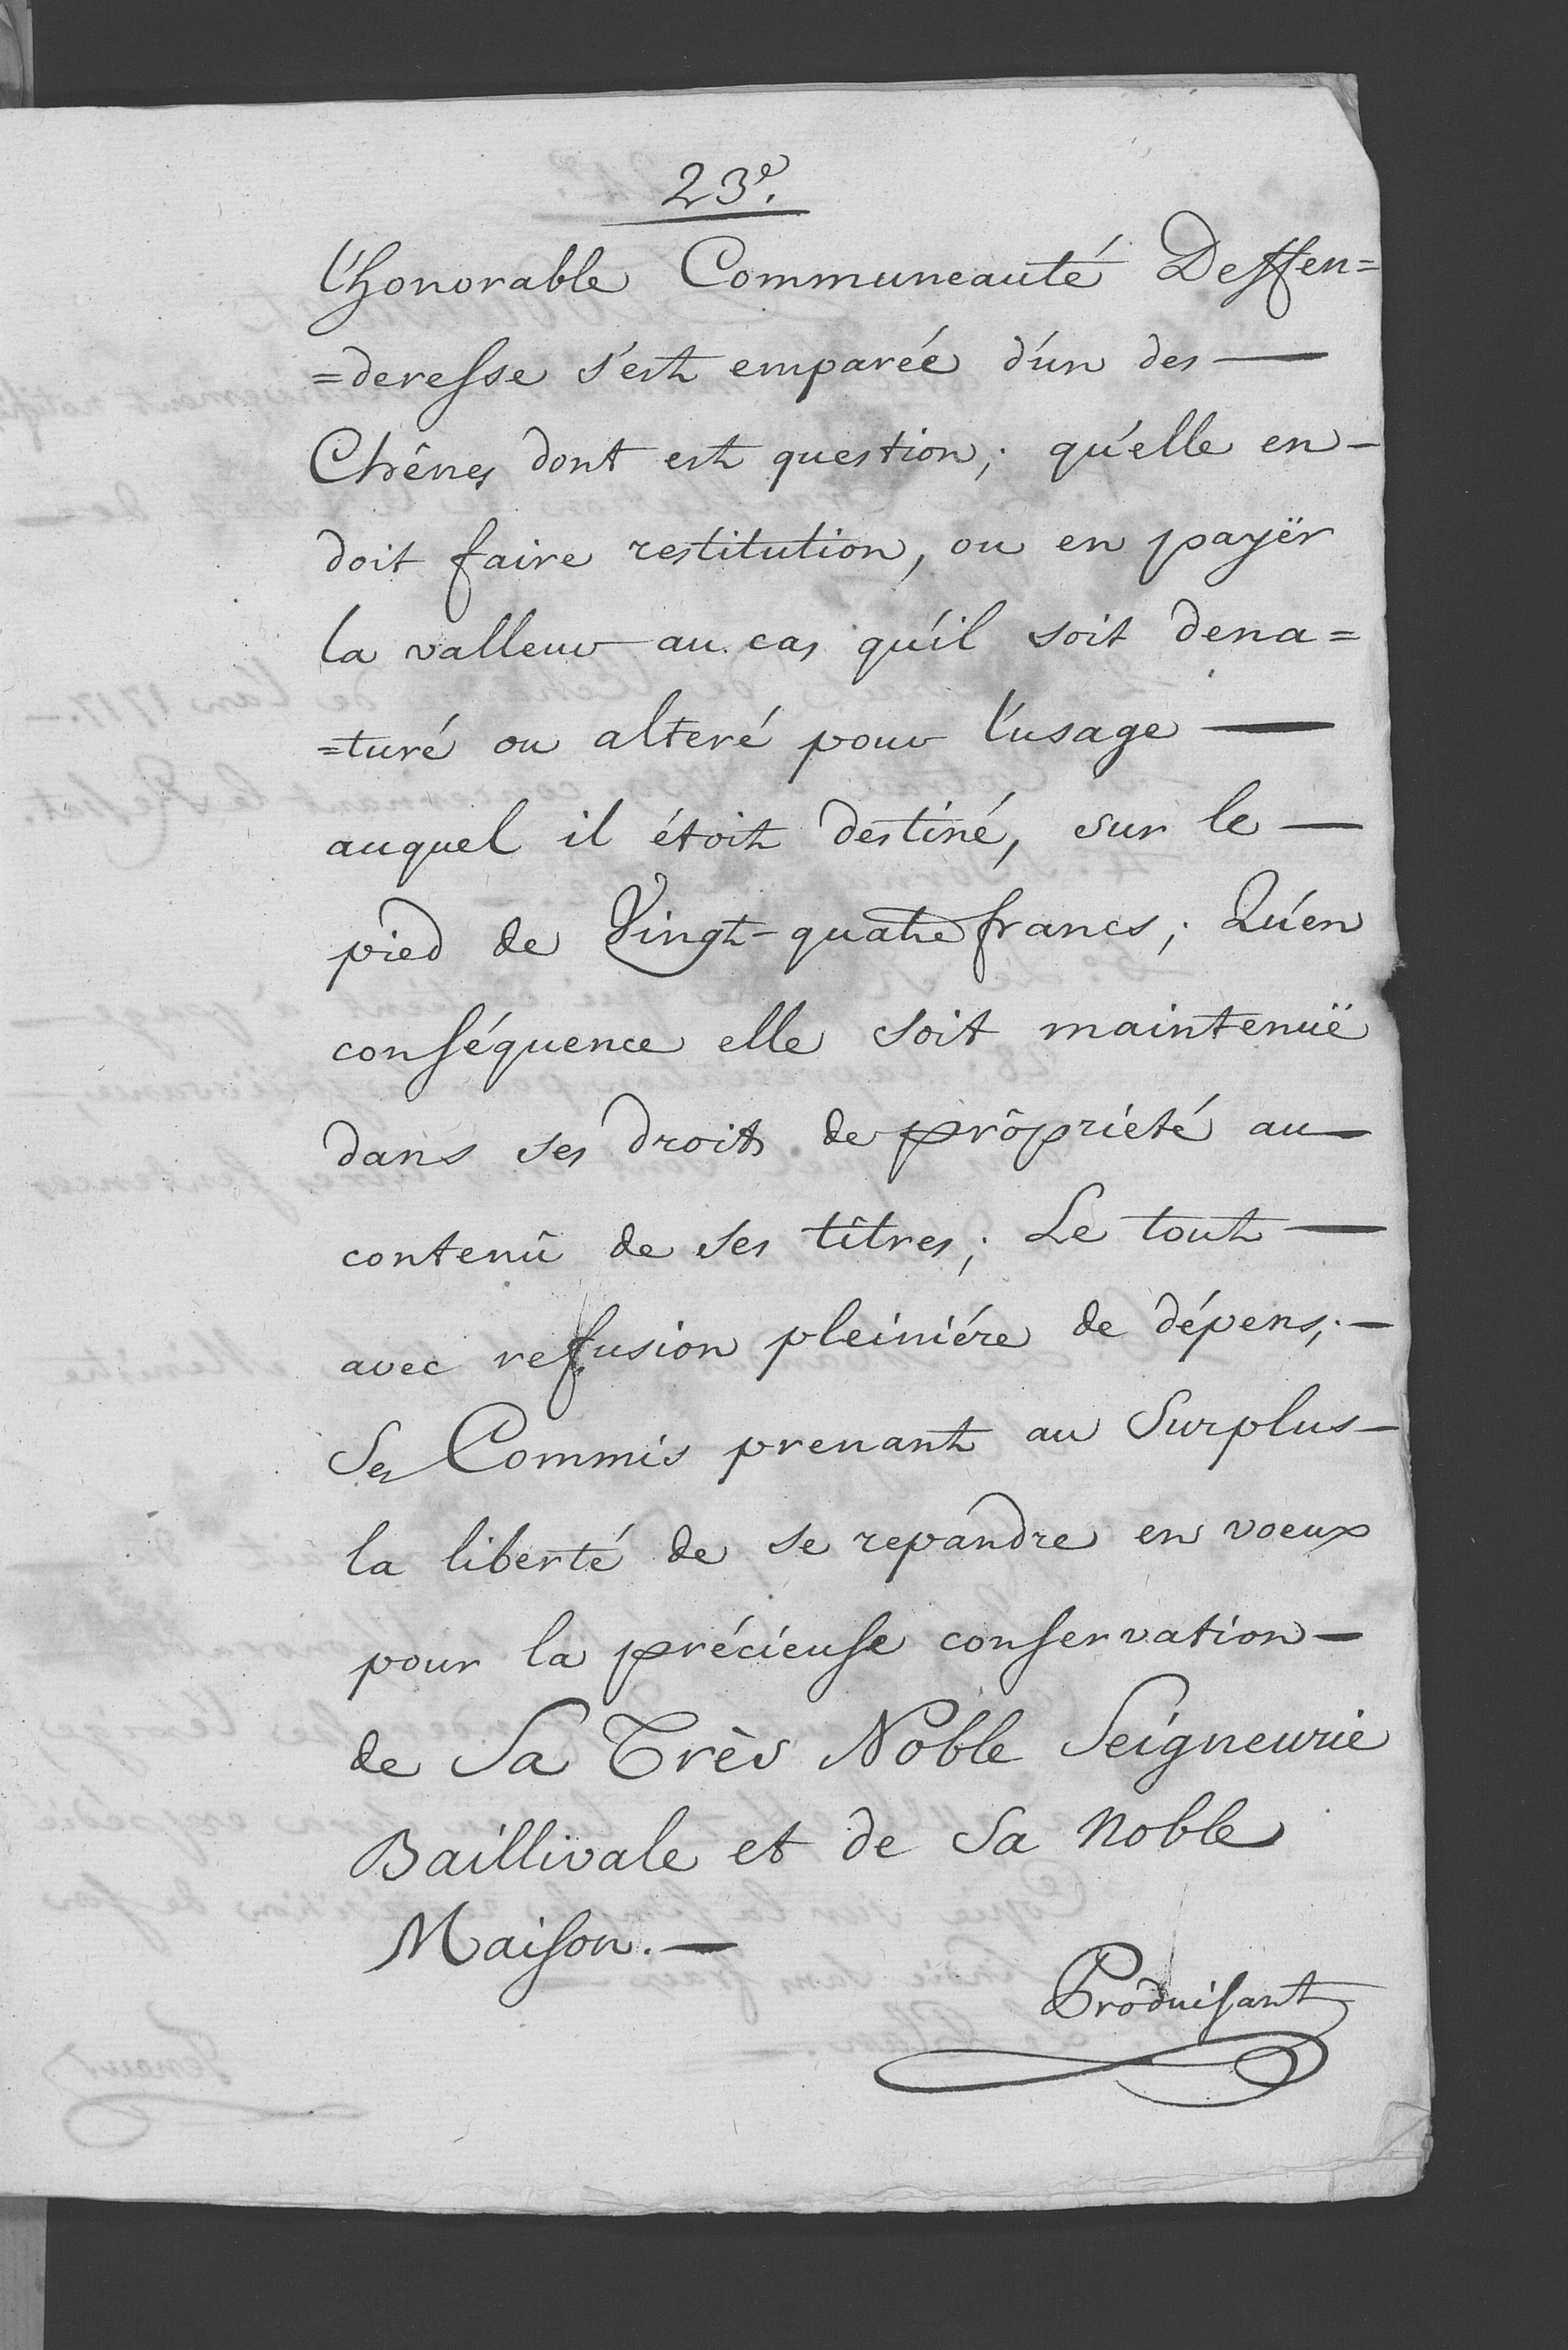 23e.
l'honorable Communeauté Deffen=
=deresse s'est emparée d'un des —
Chênes dont est question; qu'elle en —
doit faire restitution, ou en payër
la valleur au cas qu'il soit dena=
=turé ou alteré pour l'usage —
auquel il étoit destiné, sur le —
pied de Vingt-quatre francs; Qu'en
conséquence elle soit maintenuë
dans ses droits de propriété au —
contenû de ses tîtres; Le tout —
avec refusion pleiniére de dépens; —
Ses Commis prenant au Surplus —
la liberté de se repandre en voeux
pour la précieuse conservation —
de Sa Très Noble Seigneurie
Baillivale et de Sa Noble
Maison. —
Produisant